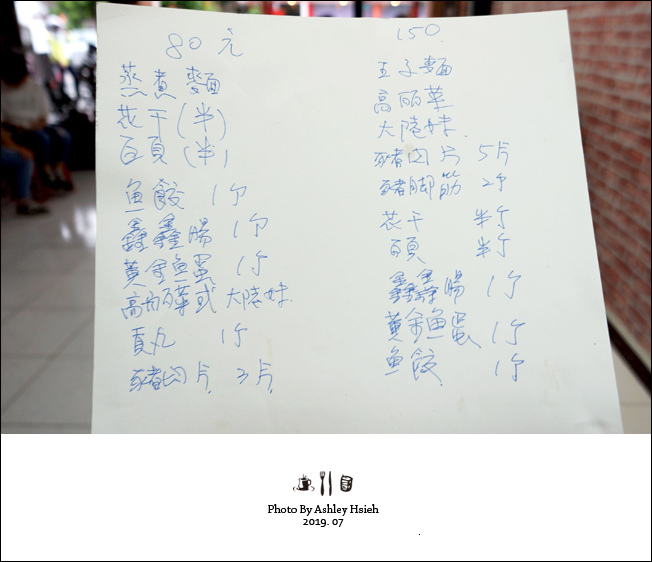 80元
蒸煮麵
花干(半)
百頁(半)
魚餃 1个
鑫鑫腸 1个
黃金魚蛋 1个
高丽菜或大陸妹
貢丸 1个
豬肉片 3片
150
王子麵
高丽菜
大陸妹
豬肉片 5片
豬脚筋 2个
花干 半个
百頁 半个
鑫鑫腸 1个
黃金魚蛋 1个
魚餃 1个
Photo By Ashley Hsieh
2019. 07